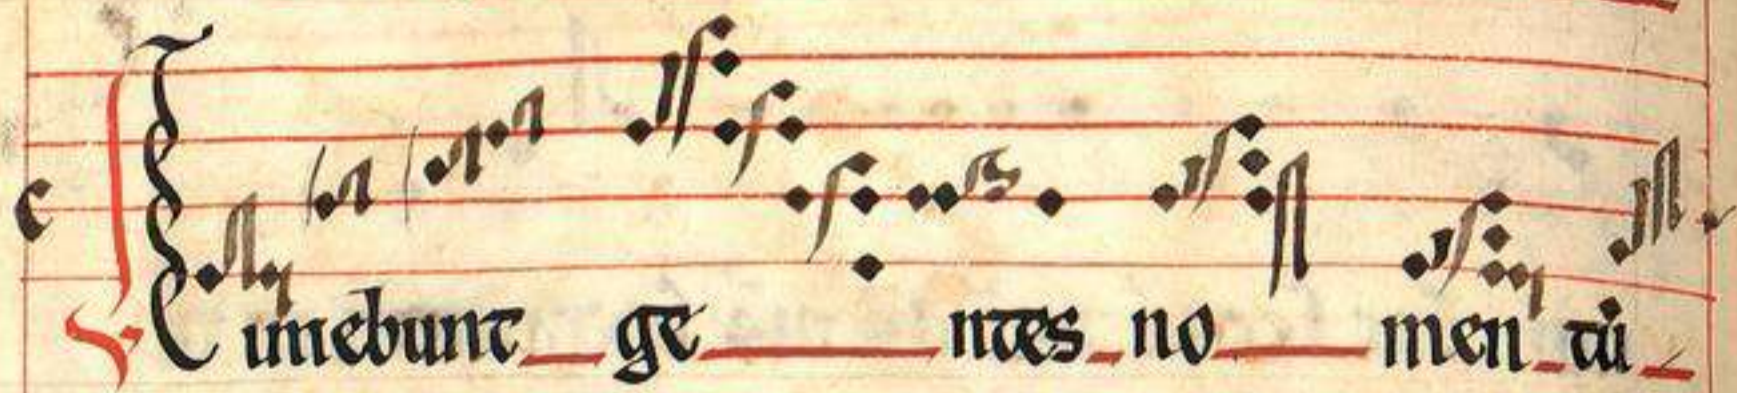 ℣ Timebunt gentes nomen tuū